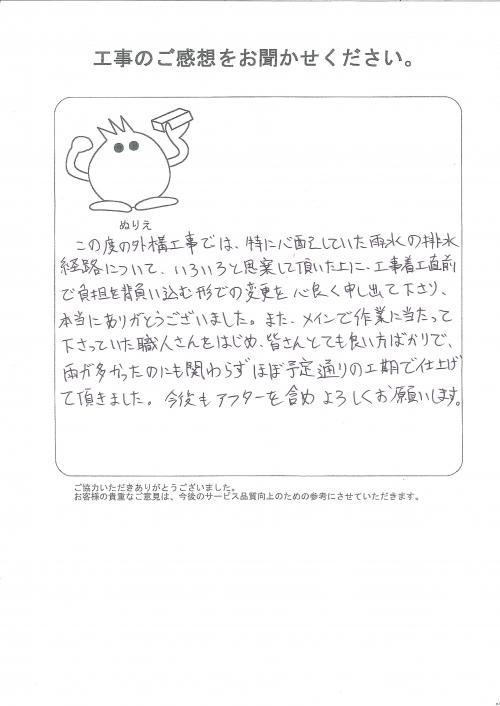 工事のご感想をお聞かせください。
ぬりえ
この度の外構工事では、特に心配していた雨水の排水
経路について、いろいろと思案して頂いた上に、工事着工直前
で負担を背負い込む形での変更を心良く申し出て下さり、
本当にありがとうございました。また、メインで作業に当たって
下さっていた職人さんをはじめ、皆さんとても良い方ばかりで、
雨が多かったのにも関わらずほぼ予定通りの工期で仕上げ
て頂きました。今後もアフターを含めよろしくお願いします。
ご協力いただきありがとうございました。
お客様の貴重なご意見は、今後のサービス品質向上のための参考にさせていただきます。